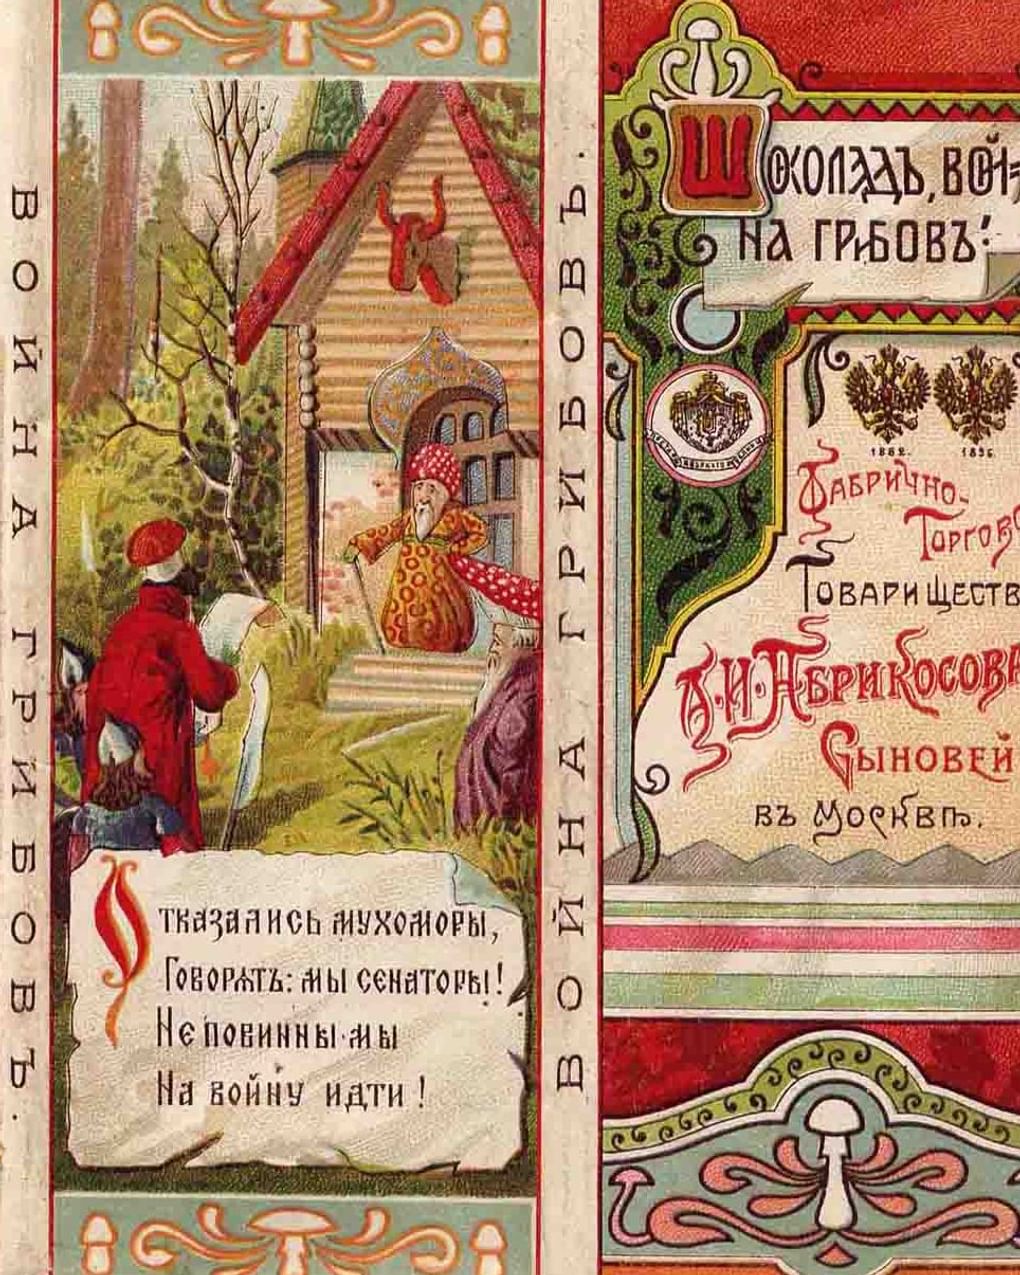 ВОЙНА ГРИБОВЪ.
Отказались мухоморы,
Говорятъ: мы сенаторы!
Не повинны мы
На войну идти!
ВОЙНА ГРИБОВЪ.
Шоколадъ, вой=
на грибовъ.
1882. 1896
Фабрично-
Торгово
Товариществ
А.И. Абрикосова
Сыновей
въ Москвѣ.